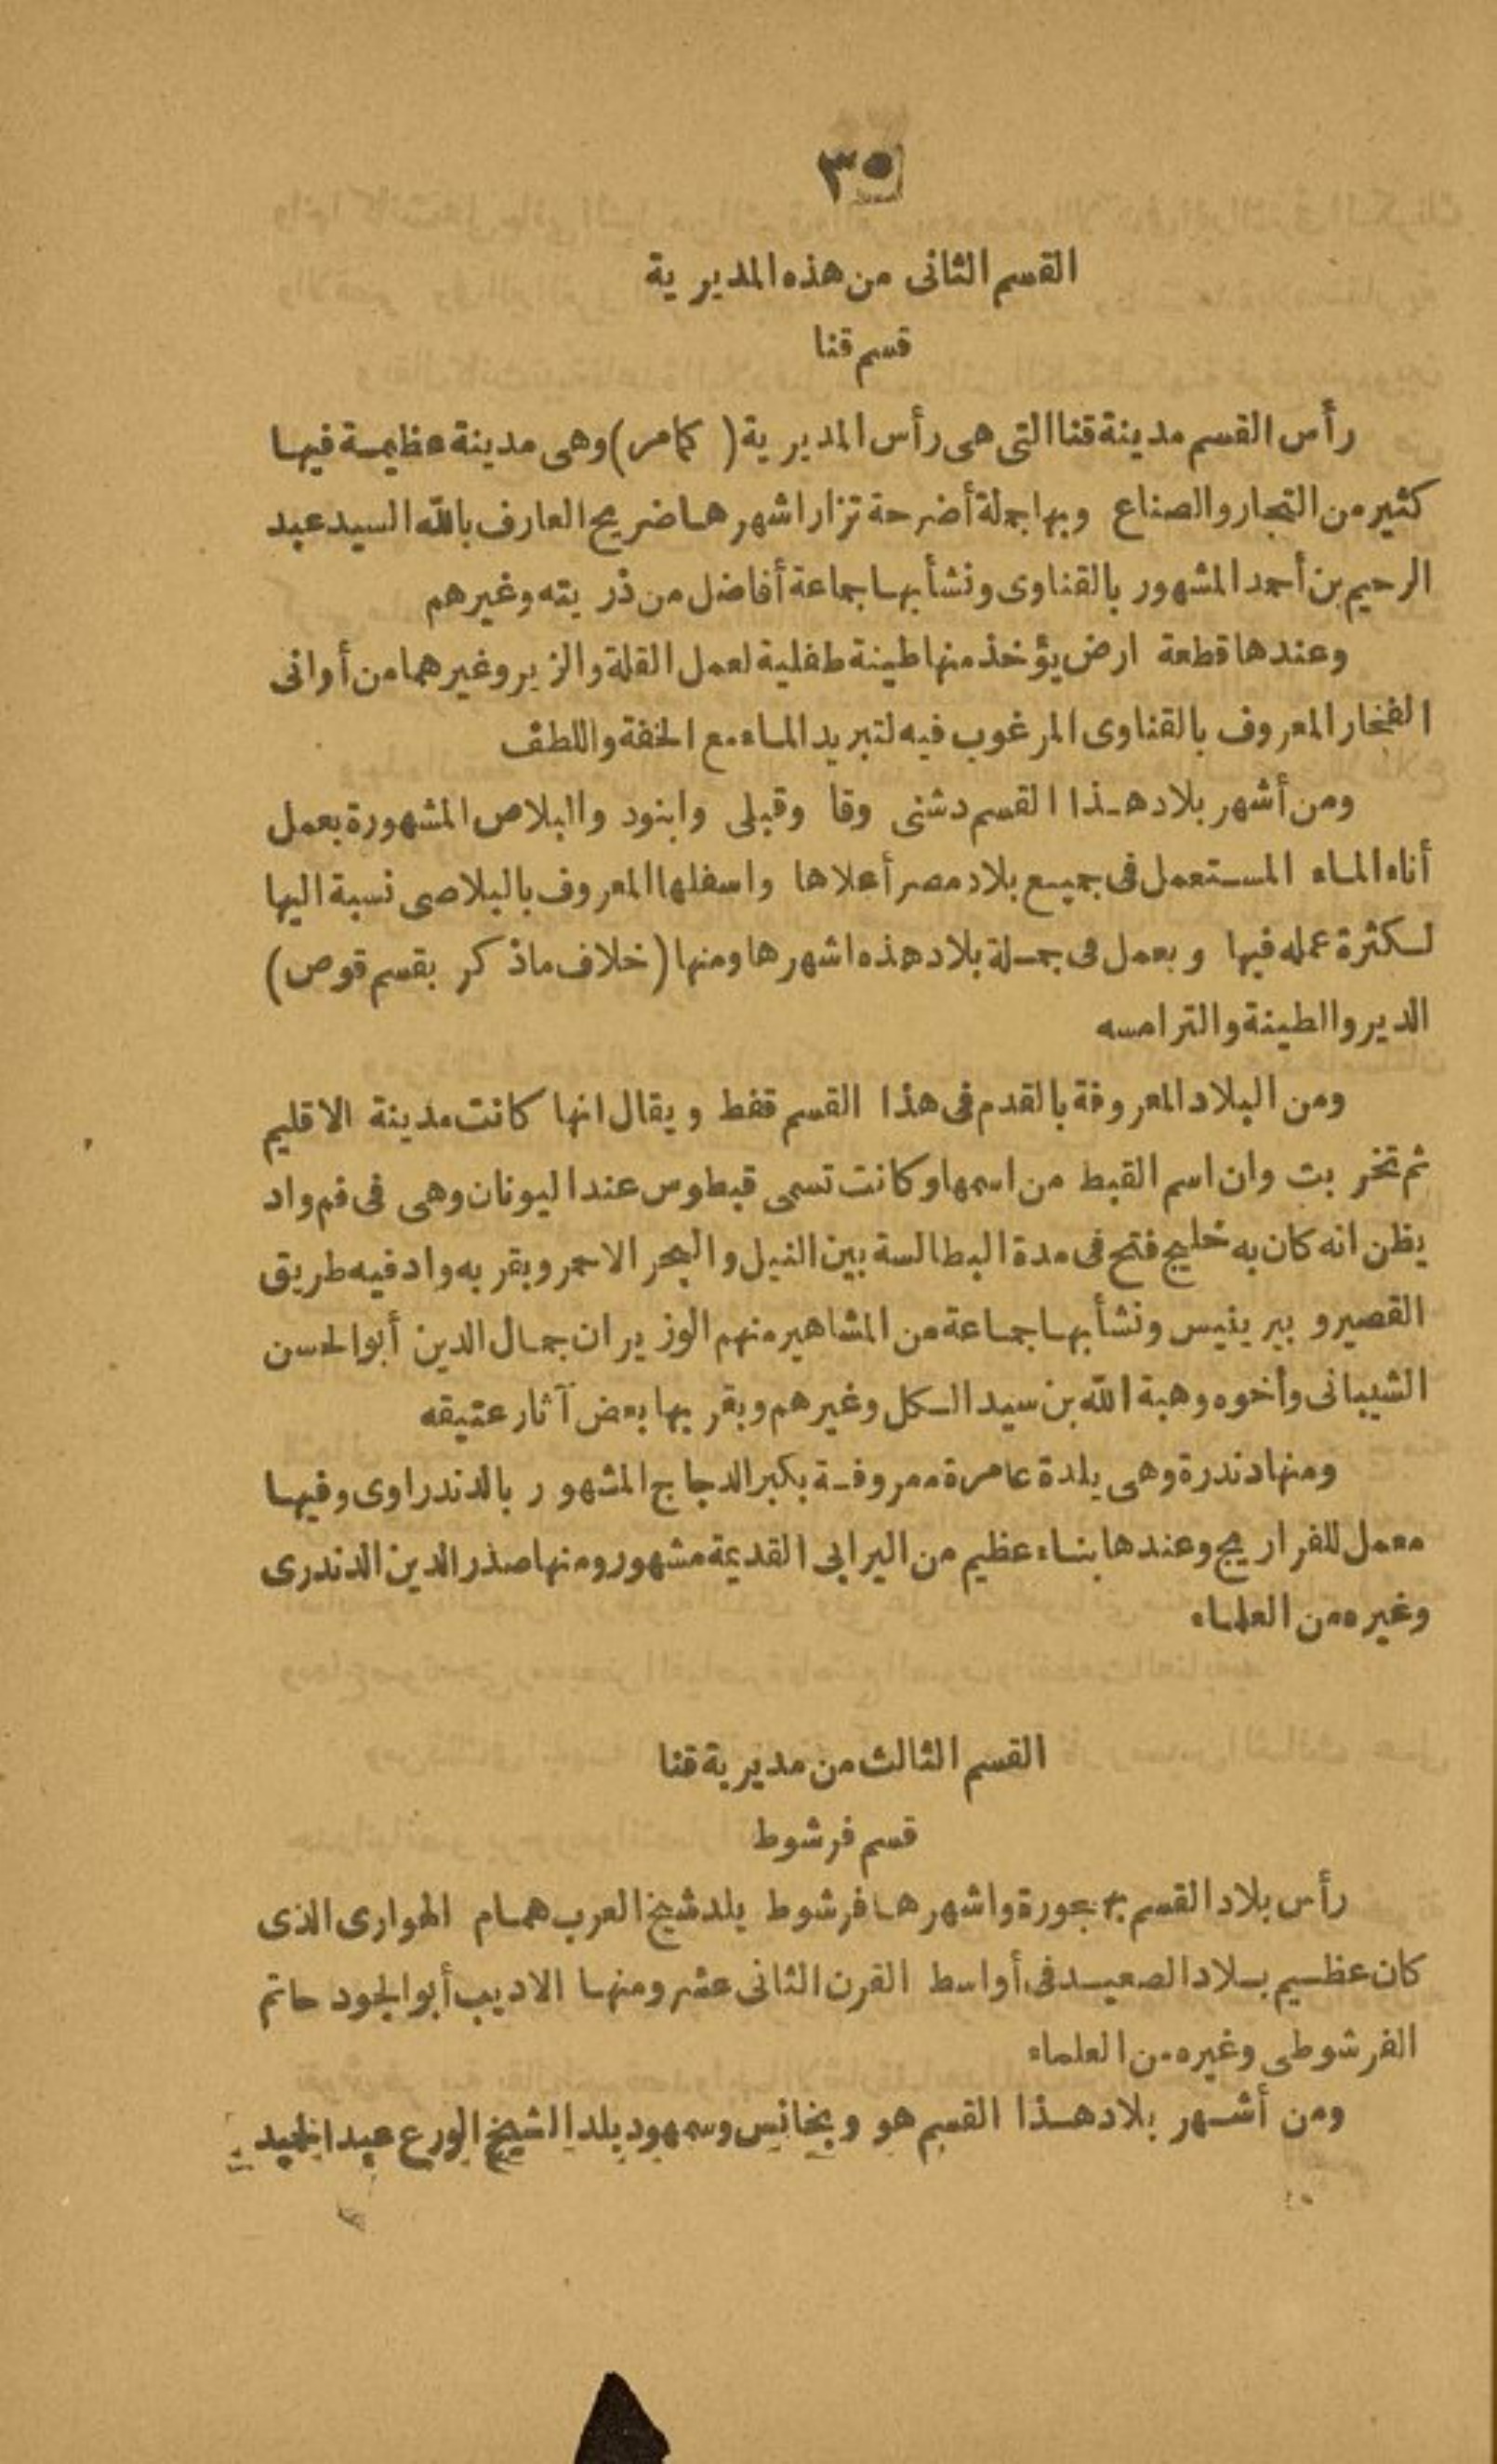 ٣٥
القسم الثانى من هذه المديرية
قسم قنا
رأس القسم مدينة قنا التى هى رأس المديرية (كامر) وهى مدينة عظيمة فيها
كثير من التجار والصناع وبها جملة أضرحة تزار اشهرها ضريح العارف بالله السيد عبد
الرحيم بن أحمد المشهور بالقناوى ونشأ بها جماعة أفاضل من ذريته وغيرهم
وعندها قطعة ارض يؤخذ منها طينة طفلية لعمل القلة والزير وغيرهما من أوانى
الفخار المعروف بالقناوى المرغوب فيه لتبريد الماء مع الخفة واللطف
ومن أشهر بلاد هذا القسم دشنى وقا وقبلى وابنود والبلاص المشهورة بعمل
أناء الماء المستعمل فى جميع بلاد مصر أعلاها واسفلها المعروف بالبلاصى نسبة اليها
لكثرة عمله فيها ويعمل فى جملة بلاد هذه اشهرها ومنها (خلاف ماذكر بقسم قوص)
الدير والطينة والترامسه
ومن البلاد المعروفة بالقدم فى هذا القسم قفط ويقال انها كانت مدينة الاقليم
ثم تخربت وان اسم القبط من اسمها وكانت تسمى قبطوس عند اليونان وهى فى فم واد
يظن انه كان به خليج فتح فى مدة البطالسة بين النيل والبحر الاحمر وبقربه واد فيه طريق
القصير و بيرينيس ونشأ بها جماعة من المشاهير منهم الوزيران جمال الدين أبو الحسن
الشيبانى وأخوه وهبة الله بن سيد الكل وغيرهم وبقربها بعض آثار عتيقه
ومنها دندرة وهى بلدة عامرة معروفة بكبر الدجاج المشهور بالدندراوى وفيها
معمل للفراريج وعندها بناء عظيم من البرابى القديمة مشهور ومنها صدر الدين الدندرى
وغيره من العلماء
القسم الثالث من مديرية قنا
قسم فرشوط
رأس بلاد القسم بهجورة واشهرها فرشوط بلد شيخ العرب همام الهوارى الذى
كان عظيم بلاد الصعيد فى أواسط القرن الثانى عشر ومنها الاديب أبو الجود حاتم
الفرشوطى وغيره من العلماء
ومن أشهر بلاد هذا القسم هو وبخانس وسمهود بلد الشيخ الورع عبد